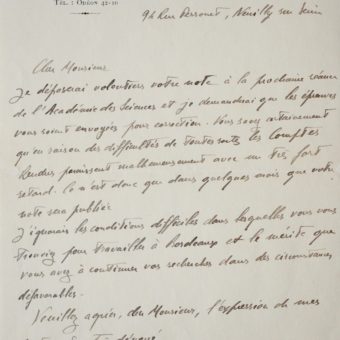 Tél. : Odéon 42-10
94 Rue Perronet, Neuilly sur Seine
Cher Monsieur
Je déposerai volontiers votre note à la prochaine séance
de l'Académie des Sciences et je demanderai que les épreuves
vous soient envoyées pour correction. Vous savez certainement
qu'en raison des difficultés de toutes sortes les Comptes
Rendus paraissent malheureusement avec un très fort
retard. Ce n'est donc que dans quelques mois que votre
note sera publiée.
J'ignorais les conditions difficiles dans lesquelles vous vous
trouviez pour travailler à Bordeaux et le mérite que
vous avez à continuer vos recherches dans des circonstances
défavorables.
Veuillez agréer, cher Monsieur, l'expression de mes
dévoué